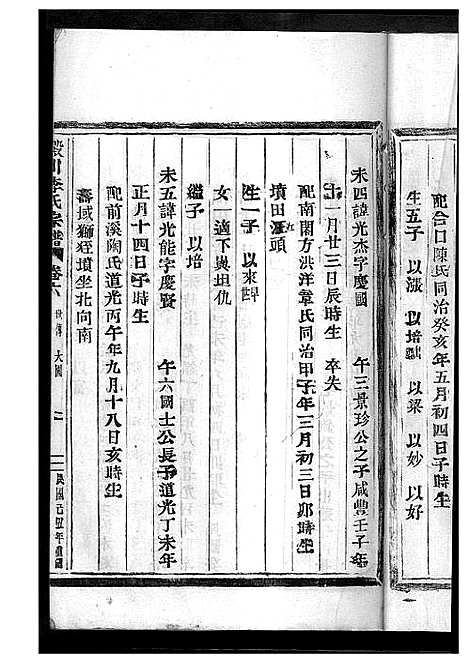 配合口陳氏同治癸亥年五月初四日子時生
生五子 以漲 以培 以梁 以妙 以好
未四諱光杰字慶國 午三景珍公之子咸豐壬子年
十一月廿三日辰時生 卒失
配南閣方洪洋章氏同治甲子年三月初三日卯時生
墳田 汪頭
生一子 以來
女一適下輿坦仇
繼子 以培
未五諱光能字慶賢 午六國士公長子道光丁未年
正月十四日子時生
配前溪陶氏道光丙午年九月十八日亥時生
壽域獅狂墳坐北向南
川李氏宗譜 卷六 世傳 大園 二 民國 丑年重